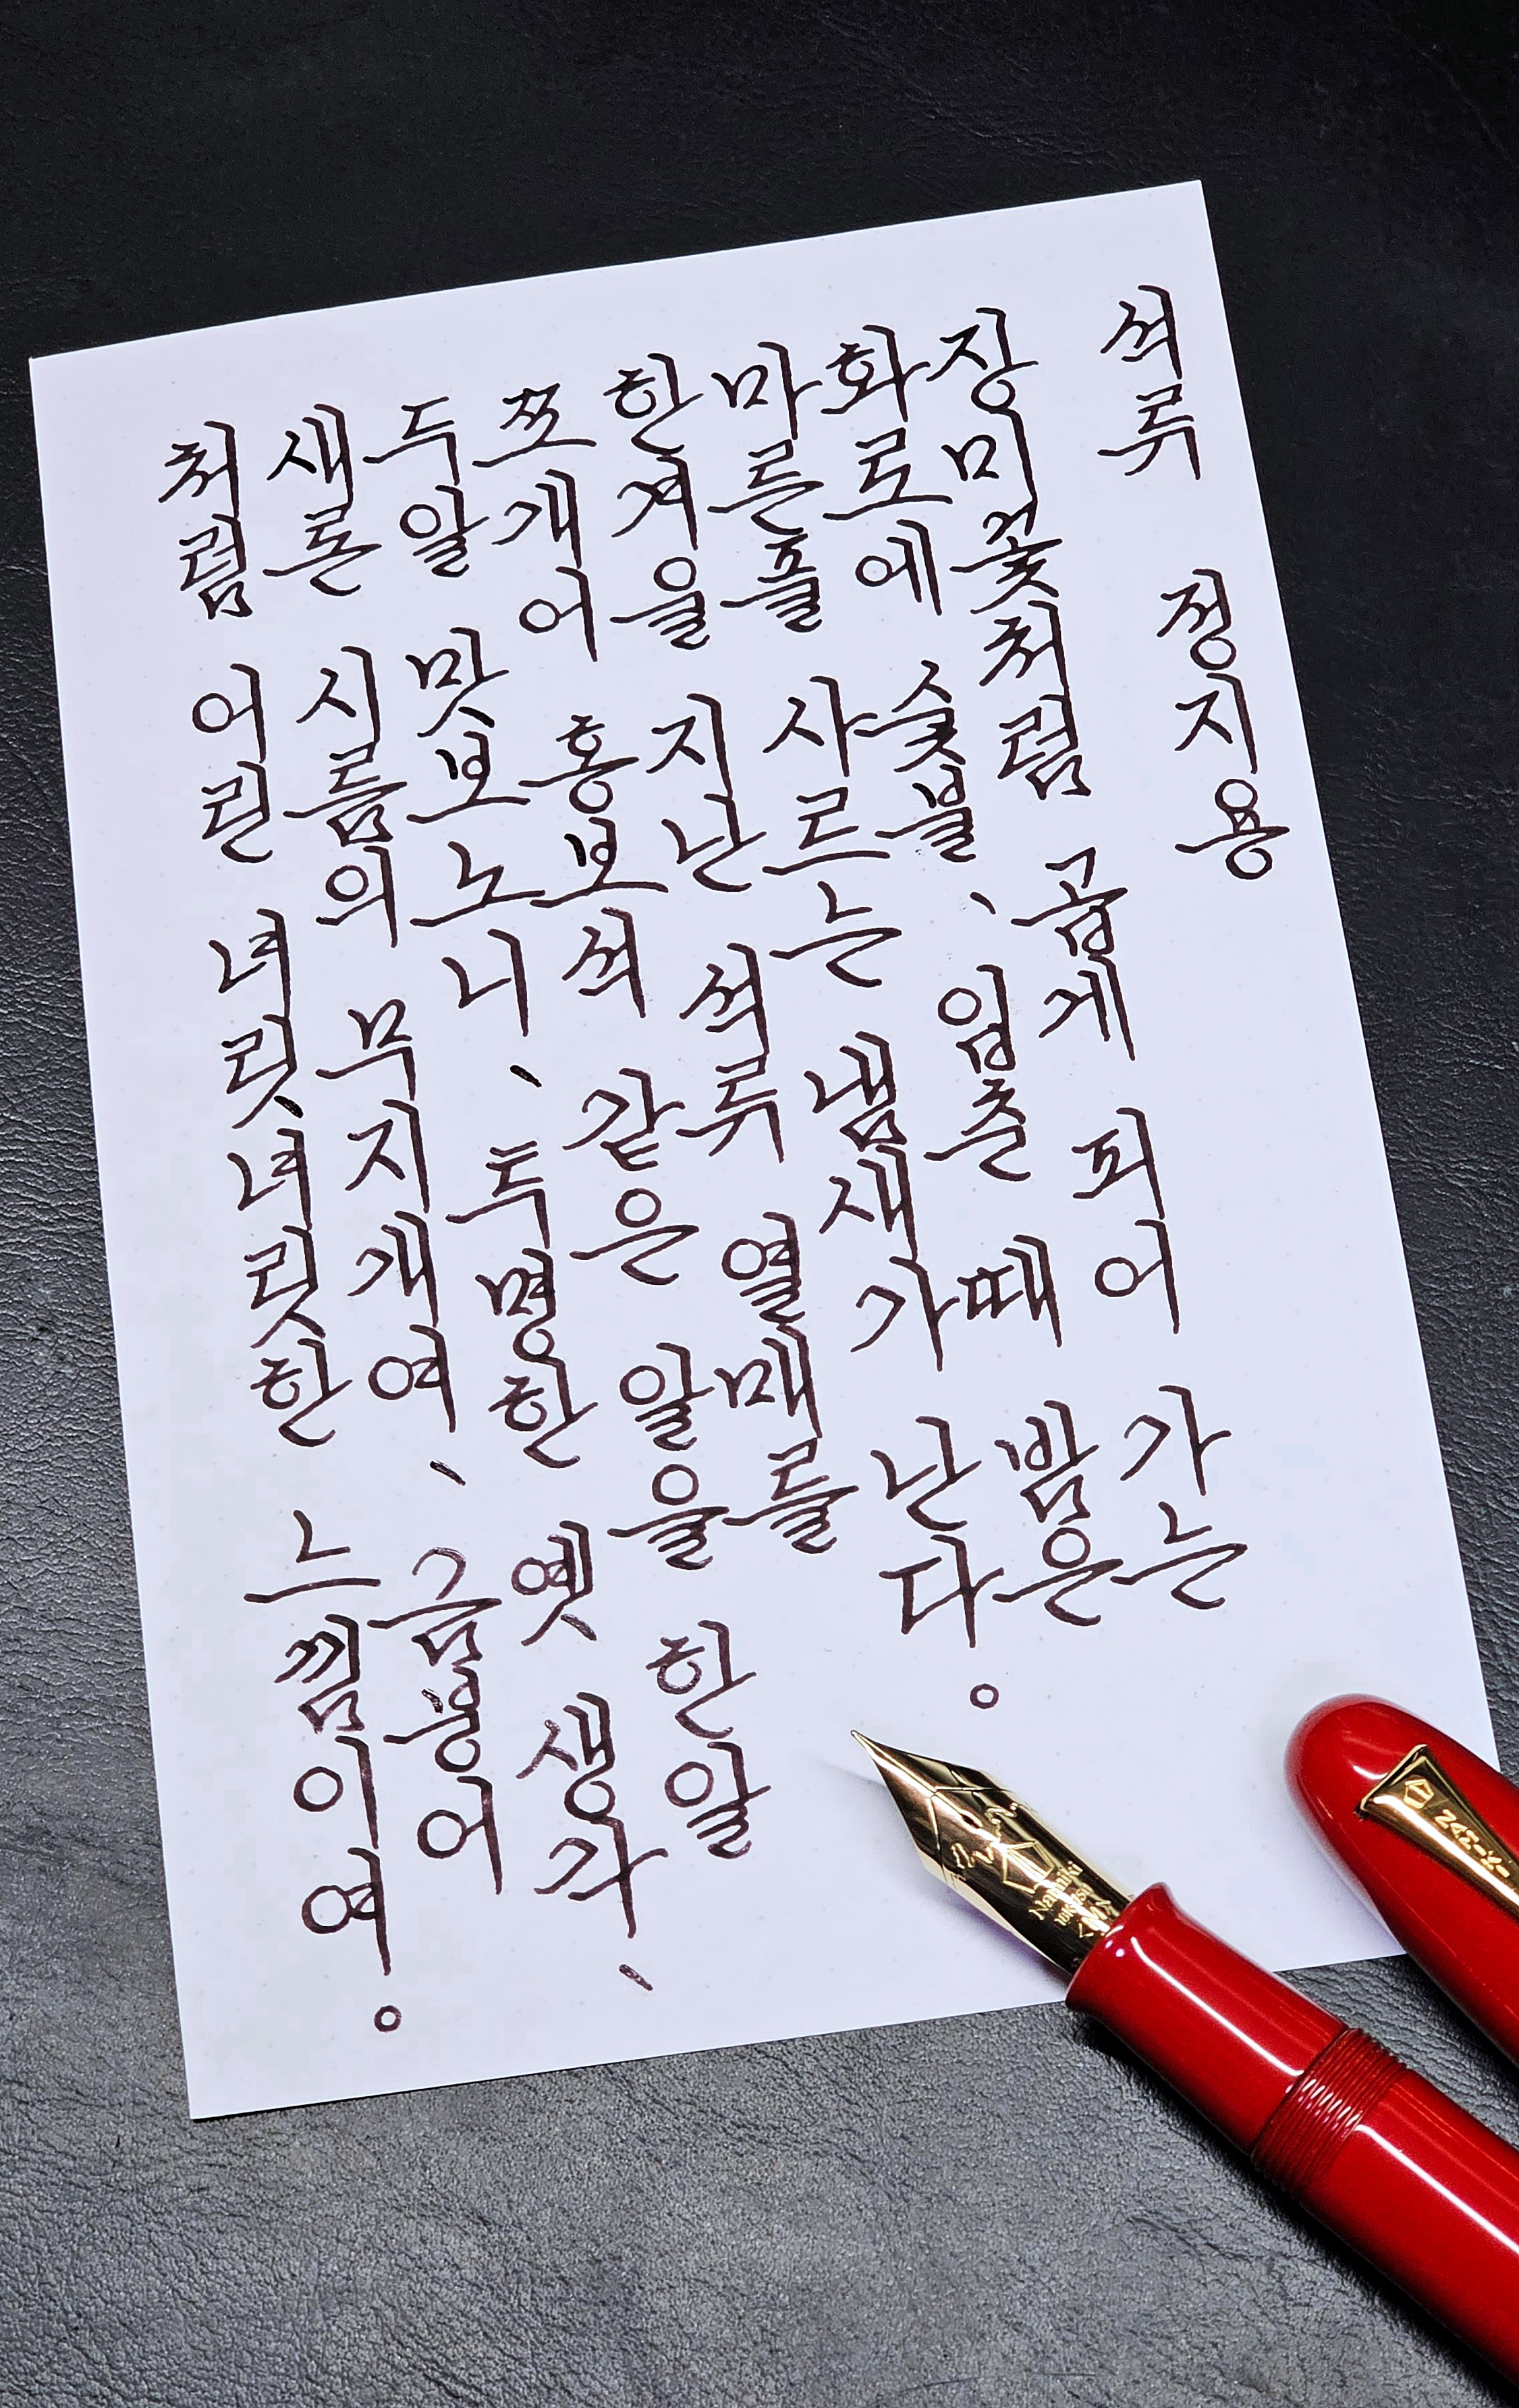 석류 정지용
장미꽃처럼 곱게 피어 가는
화로에 숯불、입춘때 밤은
마른풀 사르는 냄새가 난다。
한겨울 지난 석류 열매를
쪼개어 홍보석 같은 알을 한알
두알 맛보노니、투명한 옛 생각、
새론 시름의 무지개여、금붕어
처럼 어린 녀릿녀릿한 느낌이여。
Namiki
NAMIKI